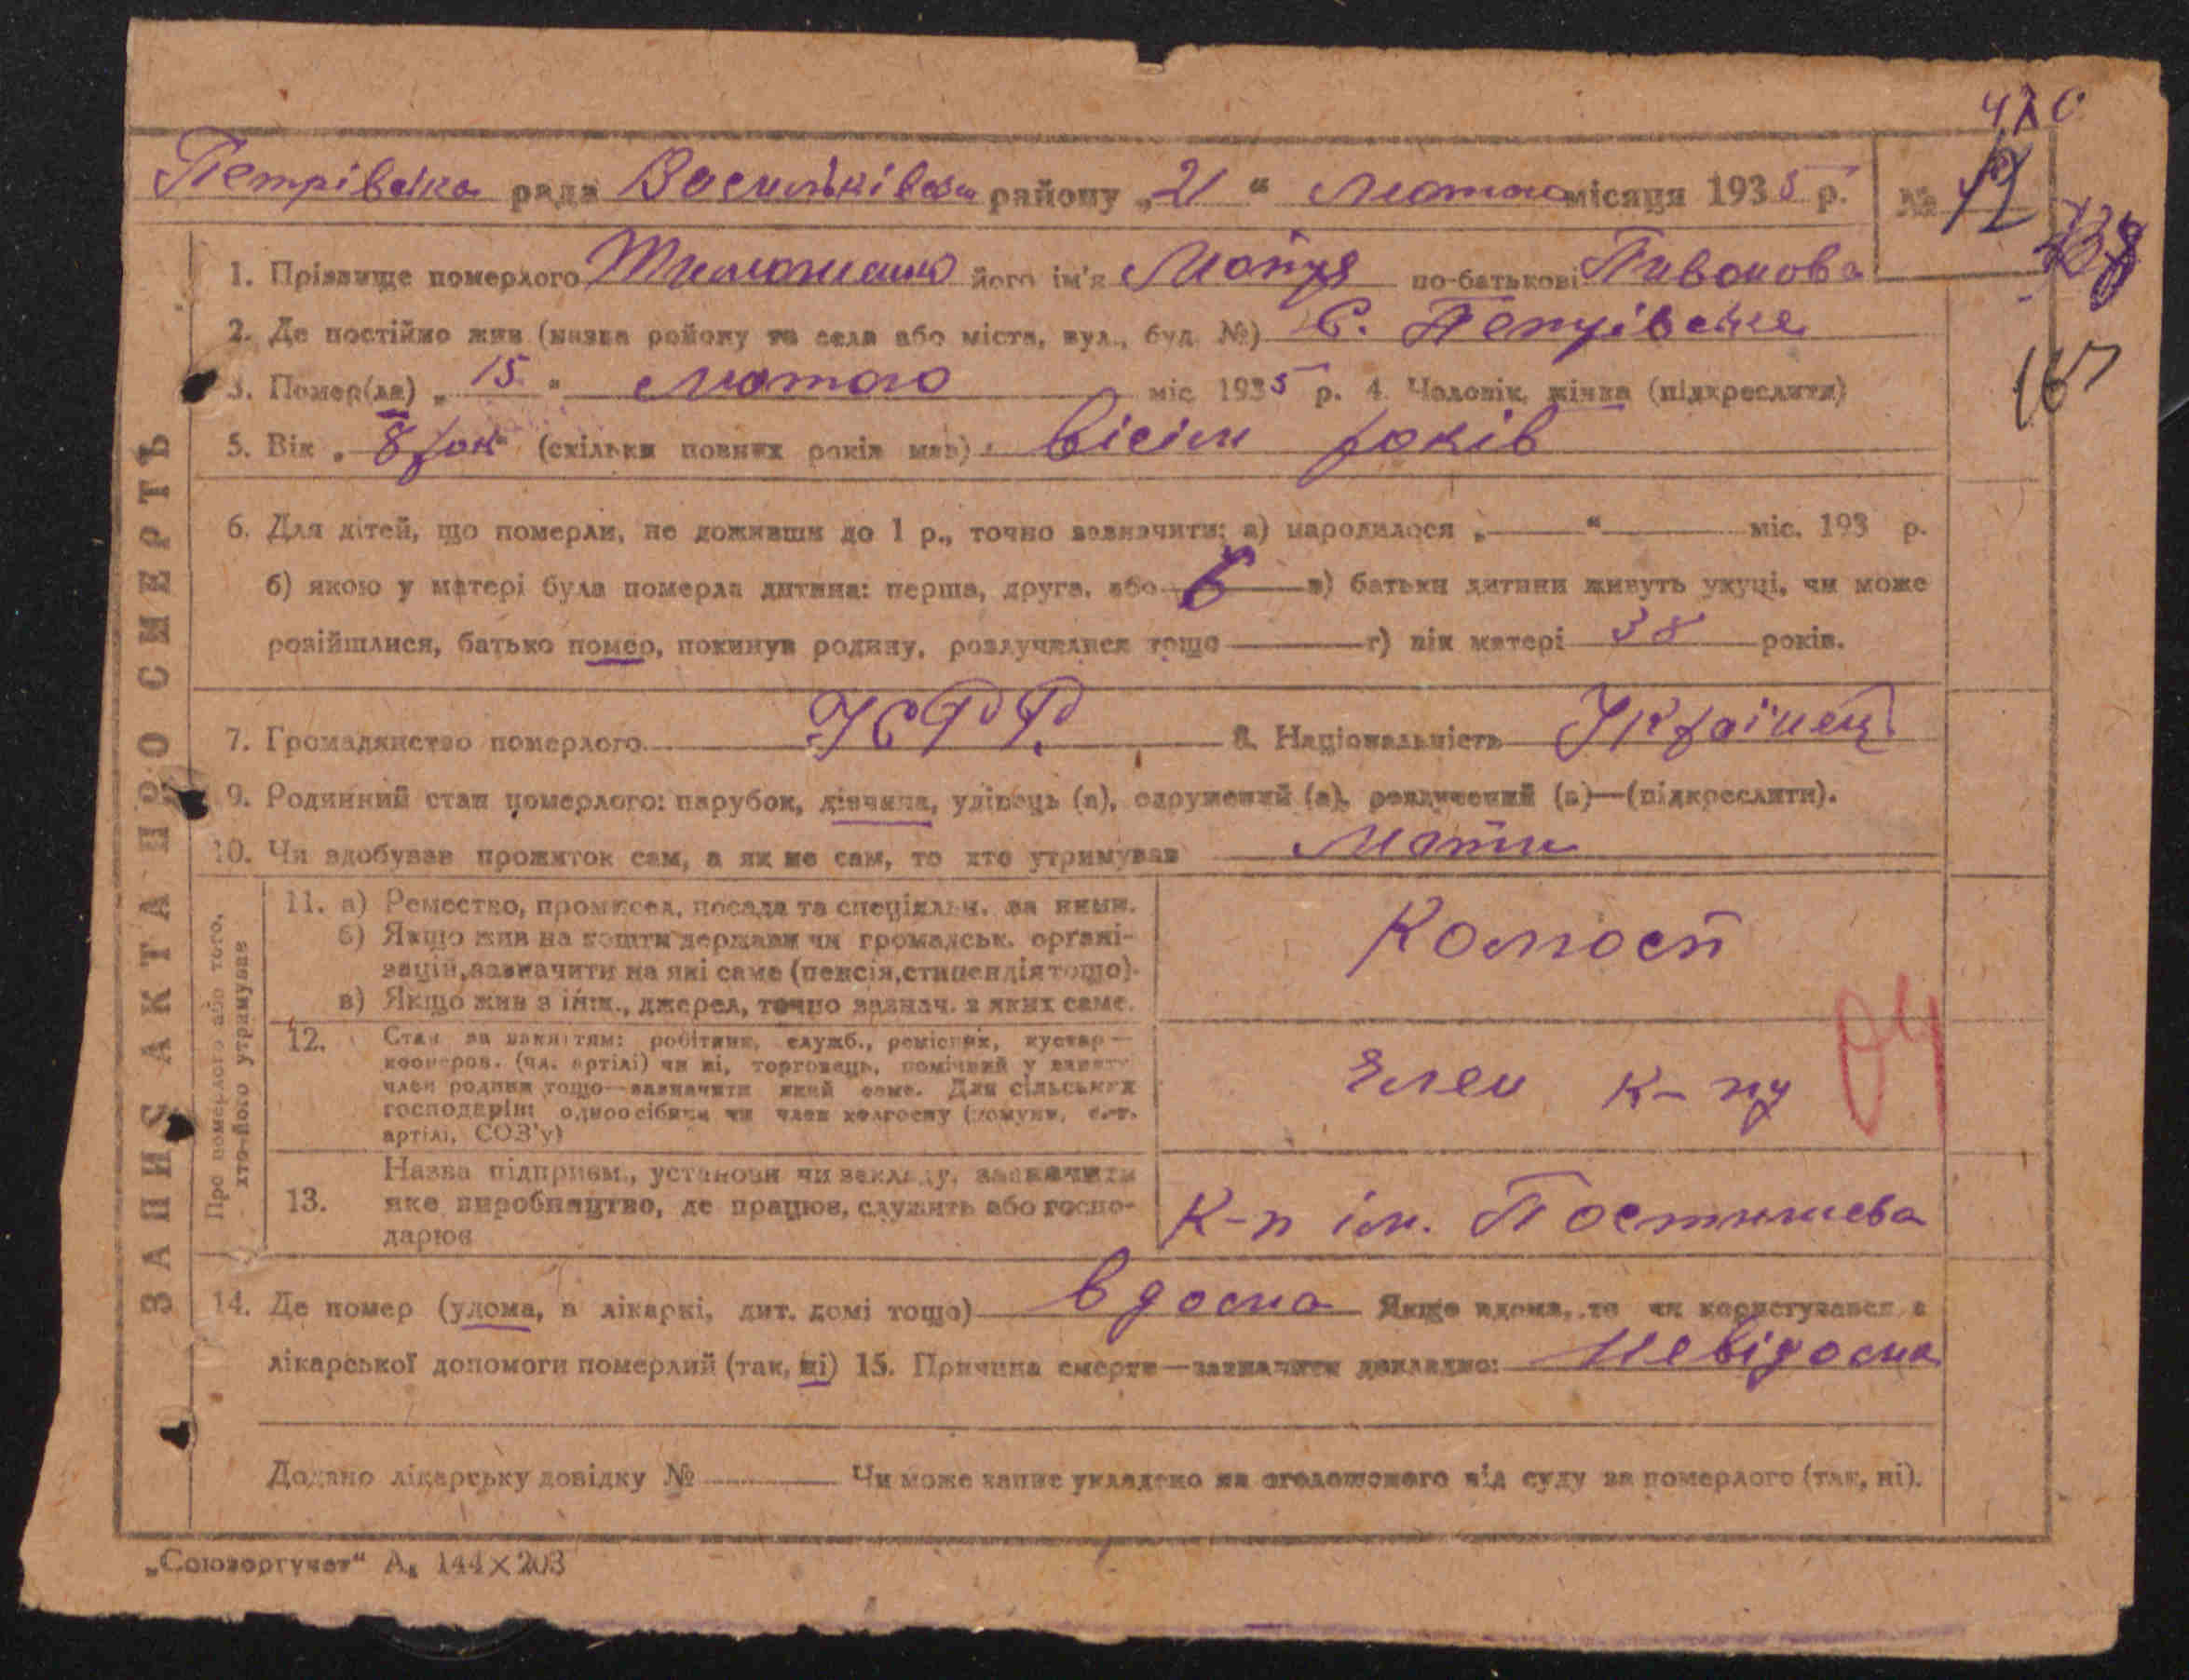 420
Петрівська рада Васильківськ району „21“ лютого місяця 1935 р. № 12
138
1. Прізвище померлого його ім'я Мотря по-батькові
2. Де постійно жив (назва району та села або міста, вул., буд. №) С. Петрівка
167
3. Помер(ла) „15“ лютого міс. 1935 р. 4. Чоловік, жінка (підкреслити)
5. Вік „8 рок“ (скільки повних років мав) вісім років
6. Для дітей, що померли, не доживши до 1 р., точно зазначити: а) народилося „—“ — міс. 193 р.
б) якою у матері була померла дитина: перша, друга, або в) батьки дитини живуть укупі, чи може
розійшлися, батько помер, покинув родину, розлучилися тощо — г) вік матері 38 років.
7. Громадянство померлого УСРР. 8. Національність Українец
9. Родинний стан померлого: парубок, дівчина, удівець (а), одружений (а), розлучений (а)—(підкреслити).
10. Чи здобував прожиток сам, а як не сам, то хто утримував Мати
ЗАПИС АКТА ПРО СМЕРТЬ
Про померлого або того, хто його утримував
11. а) Ремество, промисел, посада та спеціяльн. за яким.
б) Якщо жив на кошти держави чи громадськ. органі-
зацій, зазначити на які саме (пенсія, стипендія тощо).
в) Якщо жив з інш., джерел, точно зазнач. з яких саме.
Колгосп
12. Стан за заняттям: робітник, служб., ремісник, кустар—
кооперов. (чл. артілі) чи ні, торговець, помічний у занятті
член родини тощо—зазначити який саме. Для сільських
господарів: одноосібник чи член колгоспу (комуни, с.-г.
артілі, СОЗ'у)
Член к-пу
04
13. Назва підприєм., установи чи закладу, зазначити
яке виробництво, де працює, служить або госпо-
дарює
К-п ім. Постишева
14. Де помер (удома, в лікарні, дит. домі тощо) вдома Якщо вдома, то чи користувався з
лікарської допомоги померлий (так, ні) 15. Причина смерти—зазначити докладно: невідома
Додано лікарську довідку № — Чи може запис укладено на оголошеного від суду за померлого (так, ні).
„Союзоргучет“ А₆ 144×203